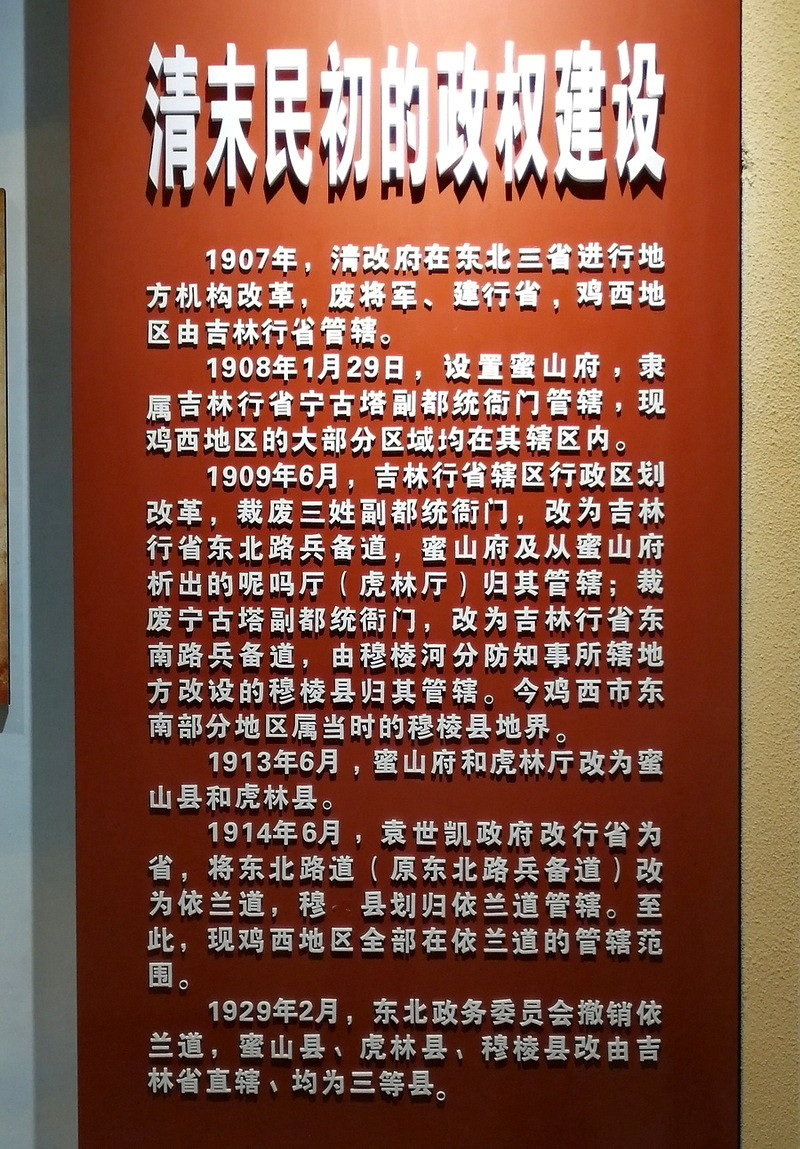 清末民初的政权建设
1907年，清改府在东北三省进行地
方机构改革，废将军、建行省，鸡西地
区由吉林行省管辖。
1908年1月29日，设置蜜山府，隶
属吉林行省宁古塔副都统衙门管辖，现
鸡西地区的大部分区域均在其辖区内。
1909年6月，吉林行省辖区行政区划
改革，裁废三姓副都统衙门，改为吉林
行省东北路兵备道，蜜山府及从蜜山府
析出的呢吗厅（虎林厅）归其管辖；裁
废宁古塔副都统衙门，改为吉林行省东
南路兵备道，由穆棱河分防知事所辖地
方改设的穆棱县归其管辖。今鸡西市东
南部分地区属当时的穆棱县地界。
1913年6月，蜜山府和虎林厅改为蜜
山县和虎林县。
1914年6月，袁世凯政府改行省为
省，将东北路道（原东北路兵备道）改
为依兰道，穆 县划归依兰道管辖。至
此，现鸡西地区全部在依兰道的管辖范
围。
1929年2月，东北政务委员会撤销依
兰道，蜜山县、虎林县、穆棱县改由吉
林省直辖、均为三等县。